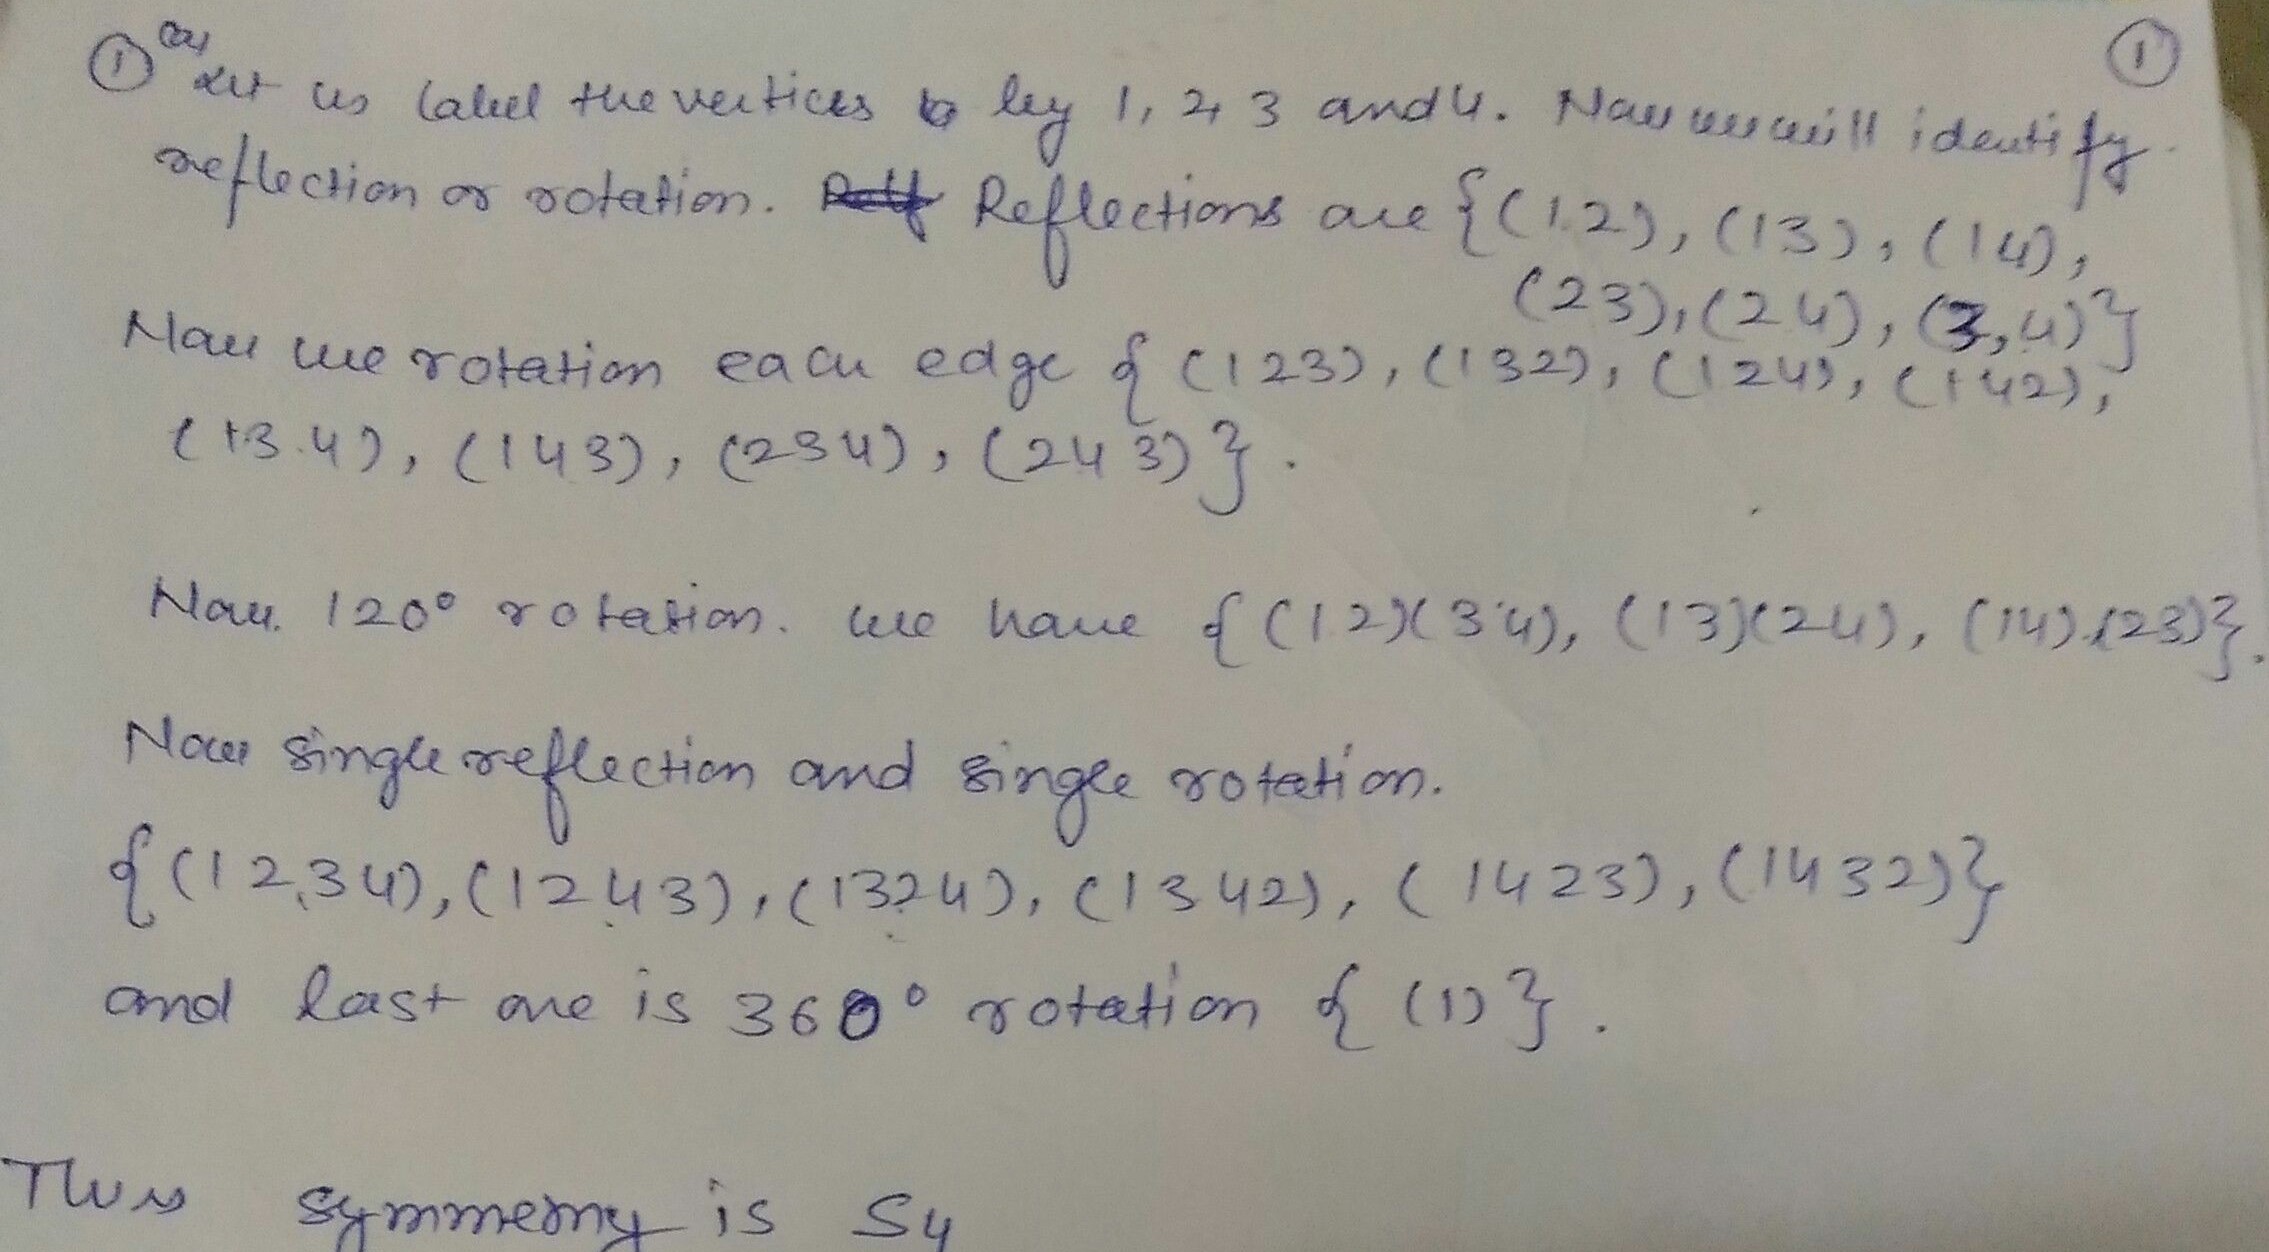 ① (a) ①
Let us label the vertices by 1, 2, 3 and 4. Now we will identify
reflection or rotation. Reflections are {(12), (13), (14),
(23), (24), (3,4)}
Now we rotation each edge {(123), (132), (124), (142),
(134), (143), (234), (243)}.
Now 120° rotation. we have {(12)(34), (13)(24), (14)(23)}.
Now single reflection and single rotation.
{(1234), (1243), (1324), (1342), (1423), (1432)}
and last one is 360° rotation {(1)}.
Thus symmetry is S4